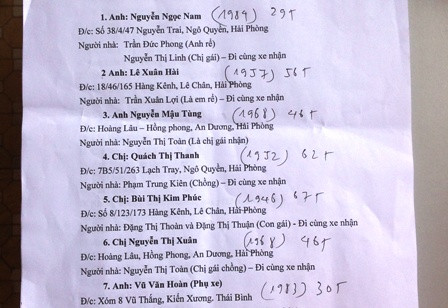 1. Anh: Nguyễn Ngọc Nam (1984) 29T
Đ/c: Số 38/4/47 Nguyễn Trai, Ngô Quyền, Hải Phòng
Người nhà: Trần Đức Phong (Anh rể)
Nguyễn Thị Linh (Chị gái) – Đi cùng xe nhận
2 Anh: Lê Xuân Hải (1957) 56T
Đ/c: 18/46/165 Hàng Kênh, Lê Chân, Hải Phòng
Người nhà: Trần Xuân Lợi (Là em rể) – Đi cùng xe nhận
3. Anh Nguyễn Mậu Tùng (1968) 46T
Đ/c: Hoàng Lâu – Hồng phong, An Dương, Hải Phòng
Người nhà: Nguyễn Thị Toàn (Là chị gái nhận)
4. Chị: Quách Thị Thanh (1952) 62T
Đ/c: 7B5/51/263 Lạch Tray, Ngô Quyền, Hải Phòng
Người nhà: Phạm Trung Kiên (Chồng) – Đi cùng xe nhận
5. Chị: Bùi Thị Kim Phúc (1946) 67T
Đ/c: Số 8/123/173 Hàng Kênh, Lê Chân, Hải Phòng
Người nhà: Đặng Thị Thoàn và Đặng Thị Thuận (Con gái) - Đi cùng xe nhận
6. Chị Nguyễn Thị Xuân (1968) 46T
Đ/c: Hoàng Lâu, Hồng Phong, An Dương, Hải Phòng
Người nhà: Nguyễn Thị Toàn (Chị gái chồng) – Đi cùng xe nhận
7. Anh: Vũ Văn Hoàn (Phụ xe) (1983) 30T
Đ/c: Xóm 8 Vũ Thắng, Kiến Xương, Thái Bình